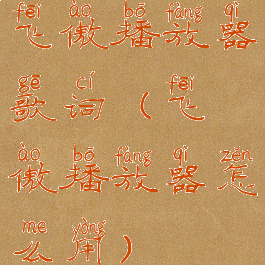 fēi ào bō fàng qì
飞傲播放器
gē cí fēi
歌词（飞
ào bō fàng qì zěn
傲播放器怎
me yòng
么用）